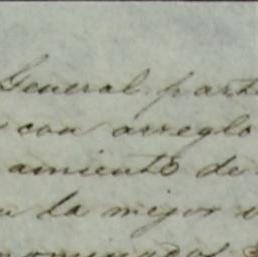 General part
con arreglo
amiento de
la mejor